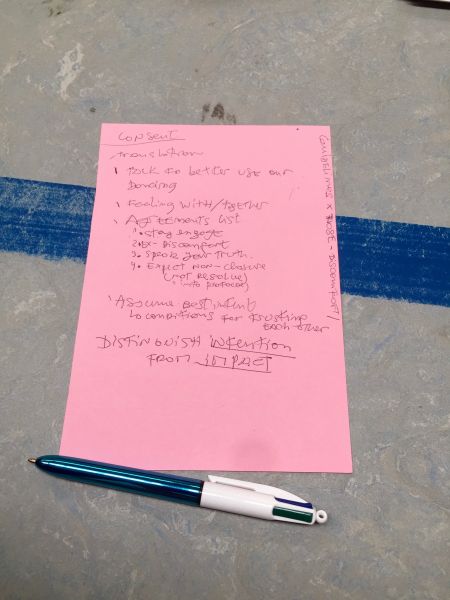 CONSENT
translation
to better use our
bonding
Feeling with/together
Agreements list
1. stay engage
2. Ex- Discomfort
3. Speak your truth.
4. Expect non-closure
(not resolve)
into protocol
Assume best intent
↳ conditions for trusting
each other
DISTINGUISH intention
FROM IMPACT
DISCOMFORT/